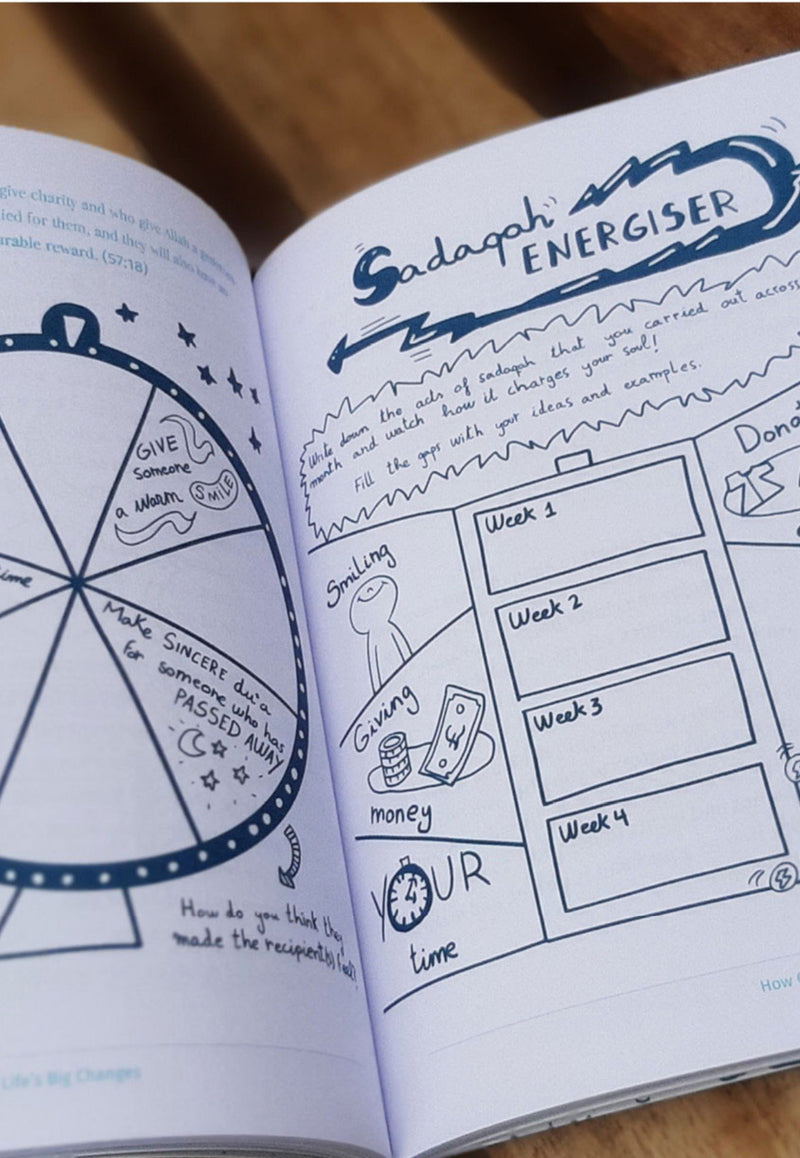 give charity and who give Allah a
ied for them, and they will also have an
urable reward. (57:18)
GIVE
Someone
a warm SMILE
time
Make SINCERE du'a
for someone who has
PASSED AWAY
How do you think they
made the recipient(s) feel?
Life's Big Changes
Sadaqah
ENERGISER
Write down the acts of sadaqah that you carried out across
month and watch how it charges your soul!
Fill the gaps with your ideas and examples.
Smiling
Giving
£
money
YOUR
time
Week 1
Week 2
Week 3
Week 4
Dona
How